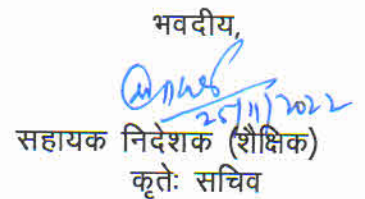 भवदीय,
25/11/2022
सहायक निदेशक (शैक्षिक)
कृतेः सचिव